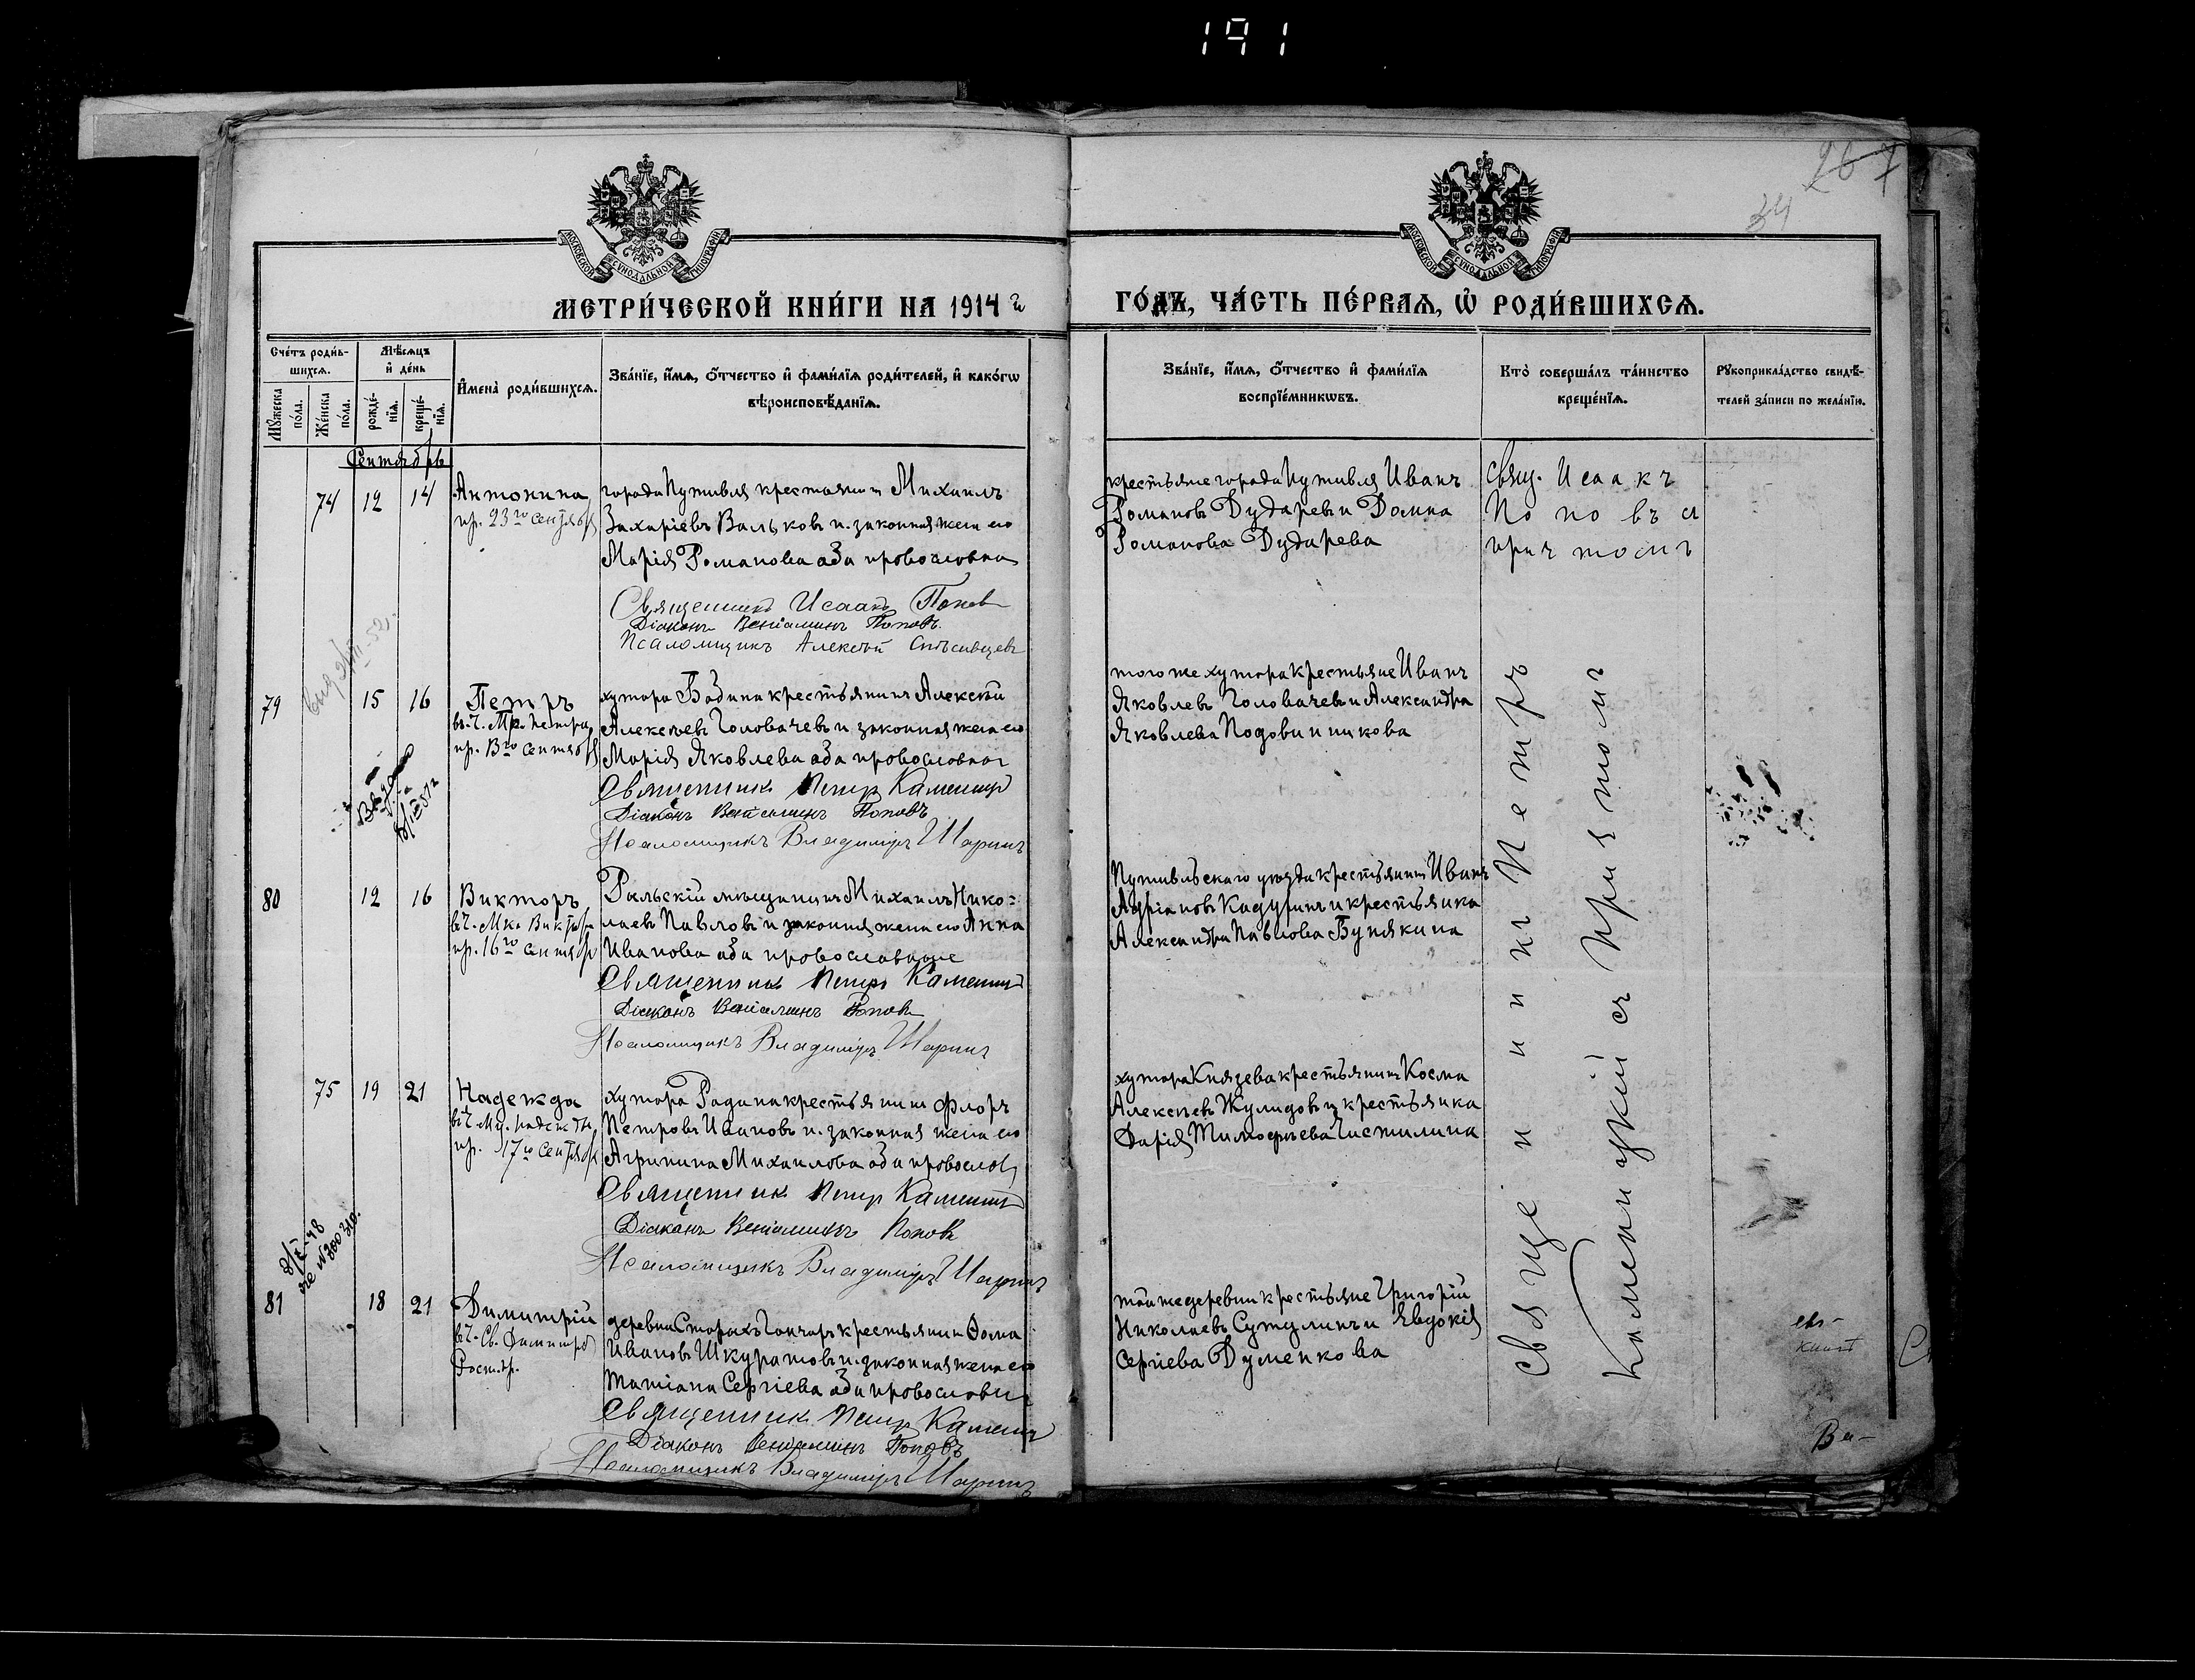 191
267
34
МОСКОВСКОЙ СѴНОДАЛЬНОЙ ТИПОГРАФІИ
МОСКОВСКОЙ СѴНОДАЛЬНОЙ ТИПОГРАФІИ
МЕТРИ́ЧЕСКОЙ КНИ́ГИ НА 1914 г
ГО́ДЪ, ЧА́СТЬ ПЕ́РВАѦ, Ѡ҆ РОДИ́ВШИХСѦ.
Сче́тъ роди́в-
шихсѧ.
Мѹ́жеска по́ла.
Же́нска по́ла.
Мѣ́сѧцъ и҆ де́нь
рожде́-нїѧ.
креще́-нїѧ.
И҆мена̀ роди́вшихсѧ.
Зва́нїе, и҆́мѧ, ѻ҆́тчество и҆ фами́лїѧ роди́телей, и҆ како́гѡ
вѣроисповѣ́данїѧ.
Зва́нїе, и҆́мѧ, ѻ҆́тчество и҆ фами́лїѧ
воспрїе́мникѡвъ.
Кто̀ соверша́лъ та́инство
креще́нїѧ.
Рꙋкоприкла́дство свидѣ́-
телей за́писи по жела́нїю.
Сентябрь
74 12 14
Антонина
пр. 23го сентября
города Путивля крестьянин Михаилъ
Захаріевъ Вальковъ и законная жена его
Марія Романова оба православна
Священникъ Исаакъ Попов
Діаконъ Веніаминъ Поповъ.
Псаломщикъ Алексѣй Спѣсивцевъ
крестьяне города Путивля Иванъ
Романовъ Дударевъ и Домна
Романова Дударева
Свящ. Исаакъ
Поповъ съ
причтомъ
79 15 16
Петръ
въ ч. Мч. Петра,
хутора Бадина крестьянинъ Алексѣй
Алексѣевъ Головачевъ и законная жена его
Марія Яковлева оба православног
Священник Петр Камениц
Діаконъ Веніаминъ Поповъ
Псаломщикъ Владиміръ Шаринъ
того же хутора крестьяне Иванъ
Яковлевъ Головачевъ и Александра
Яковлева Подовинникова
80 12 16
Викторъ
пр. 16го сентябр
Рыльскій мѣщанинъ Михаилъ Нико=
лаевъ Павловъ и законная жена его Анна
Иванова оба православные
Священник Петръ Камениц
Діаконъ Веніаминъ Поповъ
Псаломщикъ Владиміръ Шаринъ
Путивльскаго уѣзда крестьянинъ Иванъ
Адріановъ Кадуринъ и крестьянка
Александра Павлова Бунякина
75 19 21
Надежда
въ ч. Мц. Надежды,
пр. 17го сентябр
хутора Радина крестьянинъ Флоръ
Петровъ Ивановъ и законная жена его
Агрипина Михаилова оба православ
Священник Петр Камениц
Діаконъ Веніаминъ Поповъ
Псаломщикъ Владиміръ Шаринъ
хутора Князева крестьянинъ Косма
Алексѣевъ Жулидовъ и крестьянка
Дарія Тимофѣева Чистилина
81 18 21
Димитрій
въ ч. Св. Димитрія
Рост.
деревни Старыхъ Гончаръ крестьянинъ Ѳома
Ивановъ Шкуратовъ и законная жена его
Татіана Сергіева оба православны
Священник Петр Камениц
Діаконъ Веніаминъ Поповъ
Псаломщикъ Владиміръ Шаринъ
той же деревни крестьяне Григорій
Николаевъ Сутулинъ и Явдокія
Сергіева Думенкова
Священникъ Петръ
Каменицкій съ Причтомъ